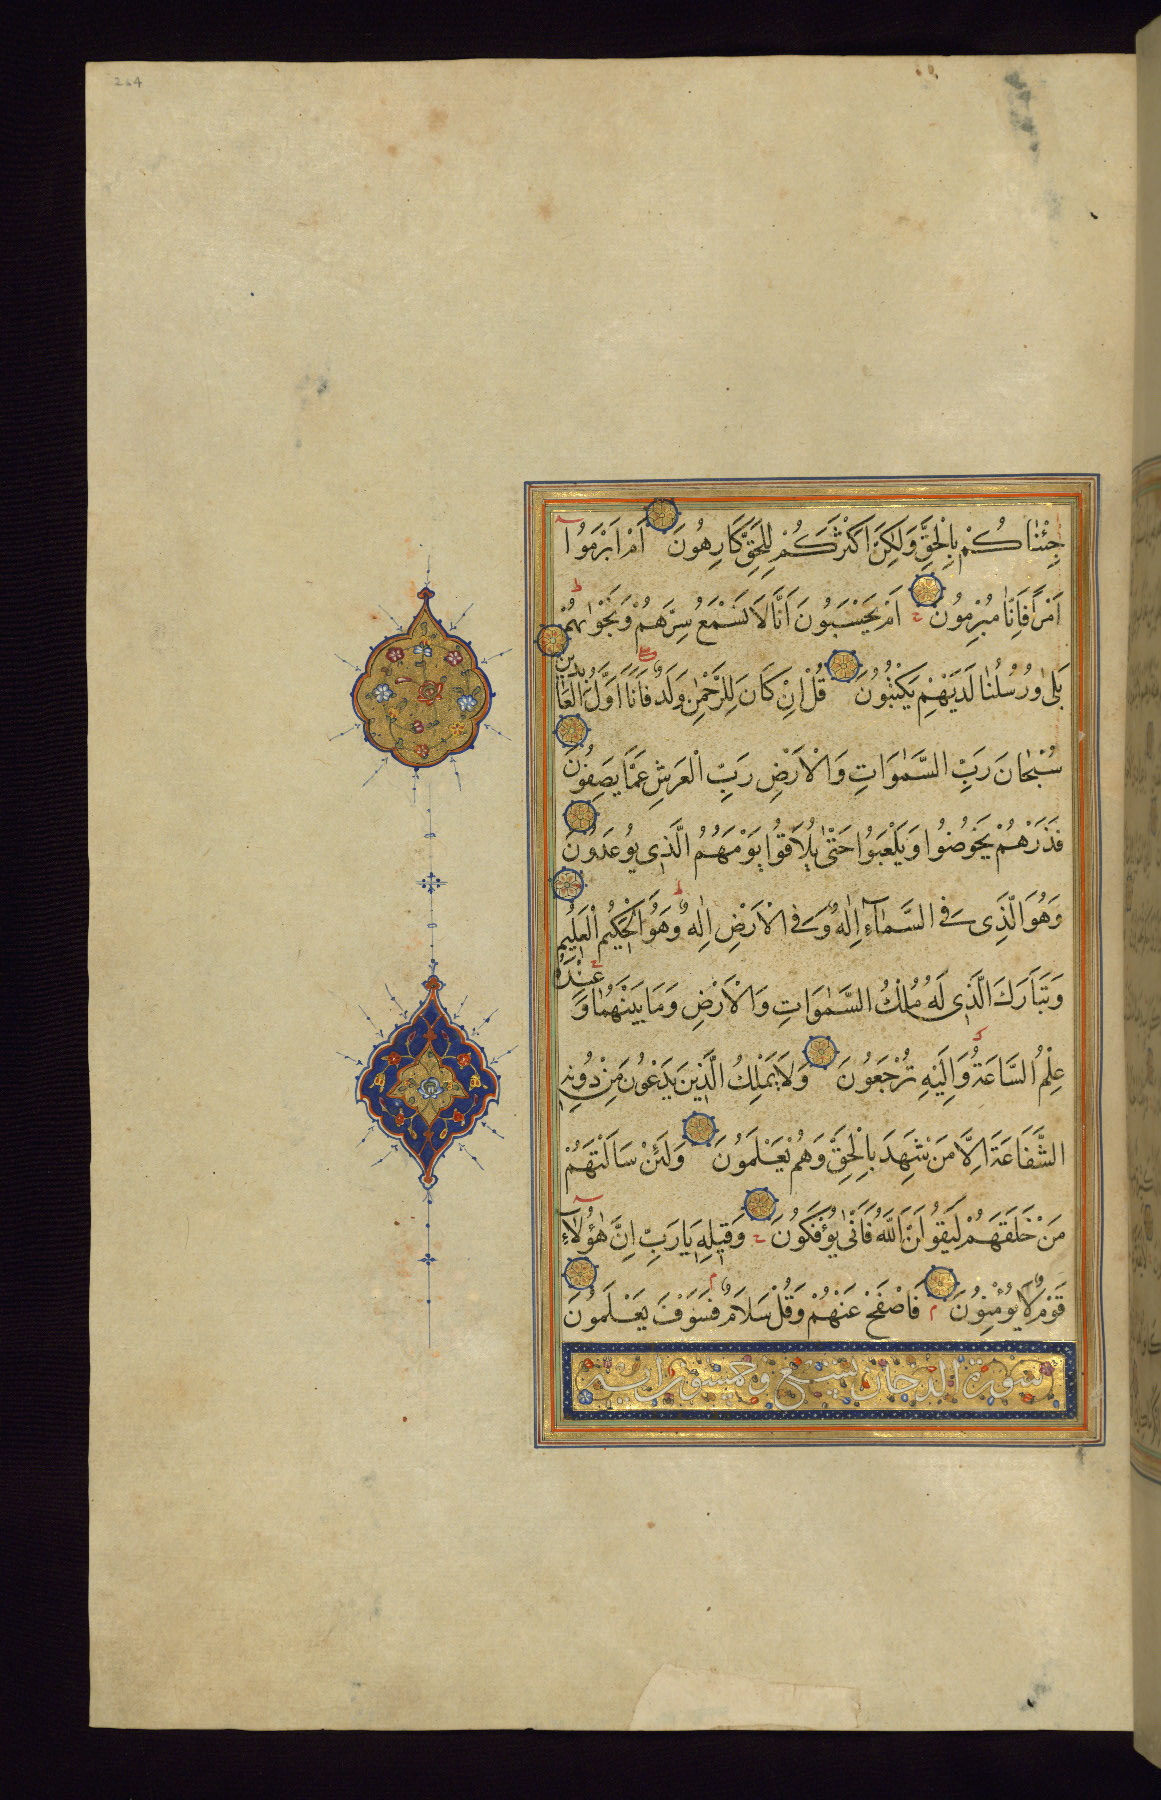 264
جِئْنَاكُمْ بِالْحَقِّ وَلَكِنَّ اَكْثَرَكُمْ لِلْحَقِّ كَارِهُونَ اَمْ اَبْرَمُوا
اَمْرًا فَاِنَّا مُبْرِمُونَ اَمْ يَحْسَبُونَ اَنَّا لَا نَسْمَعُ سِرَّهُمْ وَنَجْوٰيهُمْ
بَلٰى وَرُسُلُنَا لَدَيْهِمْ يَكْتُبُونَ قُلْ اِنْ كَانَ لِلرَّحْمٰنِ وَلَدٌ فَاَنَا اَوَّلُ الْعَابِدِينَ
سُبْحَانَ رَبِّ السَّمٰوَاتِ وَالْاَرْضِ رَبِّ الْعَرْشِ عَمَّا يَصِفُونَ
فَذَرْهُمْ يَخُوضُوا وَيَلْعَبُوا حَتّٰى يُلَاقُوا يَوْمَهُمُ الَّذِى يُوعَدُونَ
وَهُوَ الَّذِى فِى السَّمَآءِ اِلٰهٌ وَفِى الْاَرْضِ اِلٰهٌ وَهُوَ الْحَكِيمُ الْعَلِيمُ
وَتَبَارَكَ الَّذِى لَهُ مُلْكُ السَّمٰوَاتِ وَالْاَرْضِ وَمَا بَيْنَهُمَا وَعِنْدَهُ
عِلْمُ السَّاعَةِ وَاِلَيْهِ تُرْجَعُونَ وَلَا يَمْلِكُ الَّذِينَ يَدْعُونَ مِنْ دُونِهِ
الشَّفَاعَةَ اِلَّا مَنْ شَهِدَ بِالْحَقِّ وَهُمْ يَعْلَمُونَ وَلَئِنْ سَاَلْتَهُمْ
مَنْ خَلَقَهُمْ لَيَقُولُنَّ اللّٰهُ فَاَنّٰى يُؤْفَكُونَ وَقِيلِهِ يَا رَبِّ اِنَّ هٰؤُلَآءِ
قَوْمٌ لَا يُؤْمِنُونَ فَاصْفَحْ عَنْهُمْ وَقُلْ سَلَامٌ فَسَوْفَ يَعْلَمُونَ
سورة الدخان تسع وخمسون اية